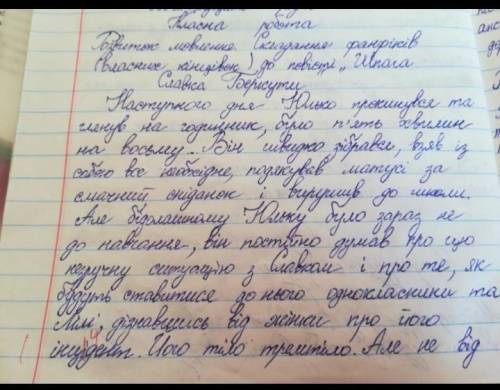 Класна робота
Розвиток мовлення. Складання фанфіків
(власних кінцівок) до повісті „Шпага
Славка Беркути.
Наступного дня Юлько прокинувся та
глянув на годинник, було п'ять хвилин
на восьму... Він швидко зібрався, взяв із
собою все необхідне, подякував матусі за
смачний сніданок і вирушив до школи.
Але бідолашному Юльку було зараз не
до навчання, він постійно думав про цю
незручну ситуацію з Славком і про те, як
будуть ставитися до нього однокласники та
Лілі, дізнавшись від жінки про його
інцидент. Його тіло тремтіло. Але не від